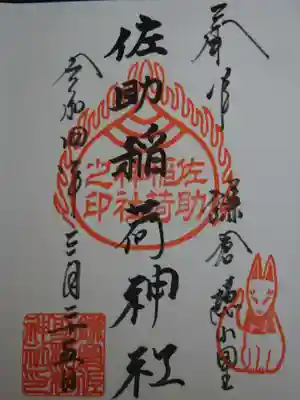 奉拝 鎌倉隠れ里
佐助稲荷神社
令和四年三月二十五日
佐助
稲荷
神社
之印